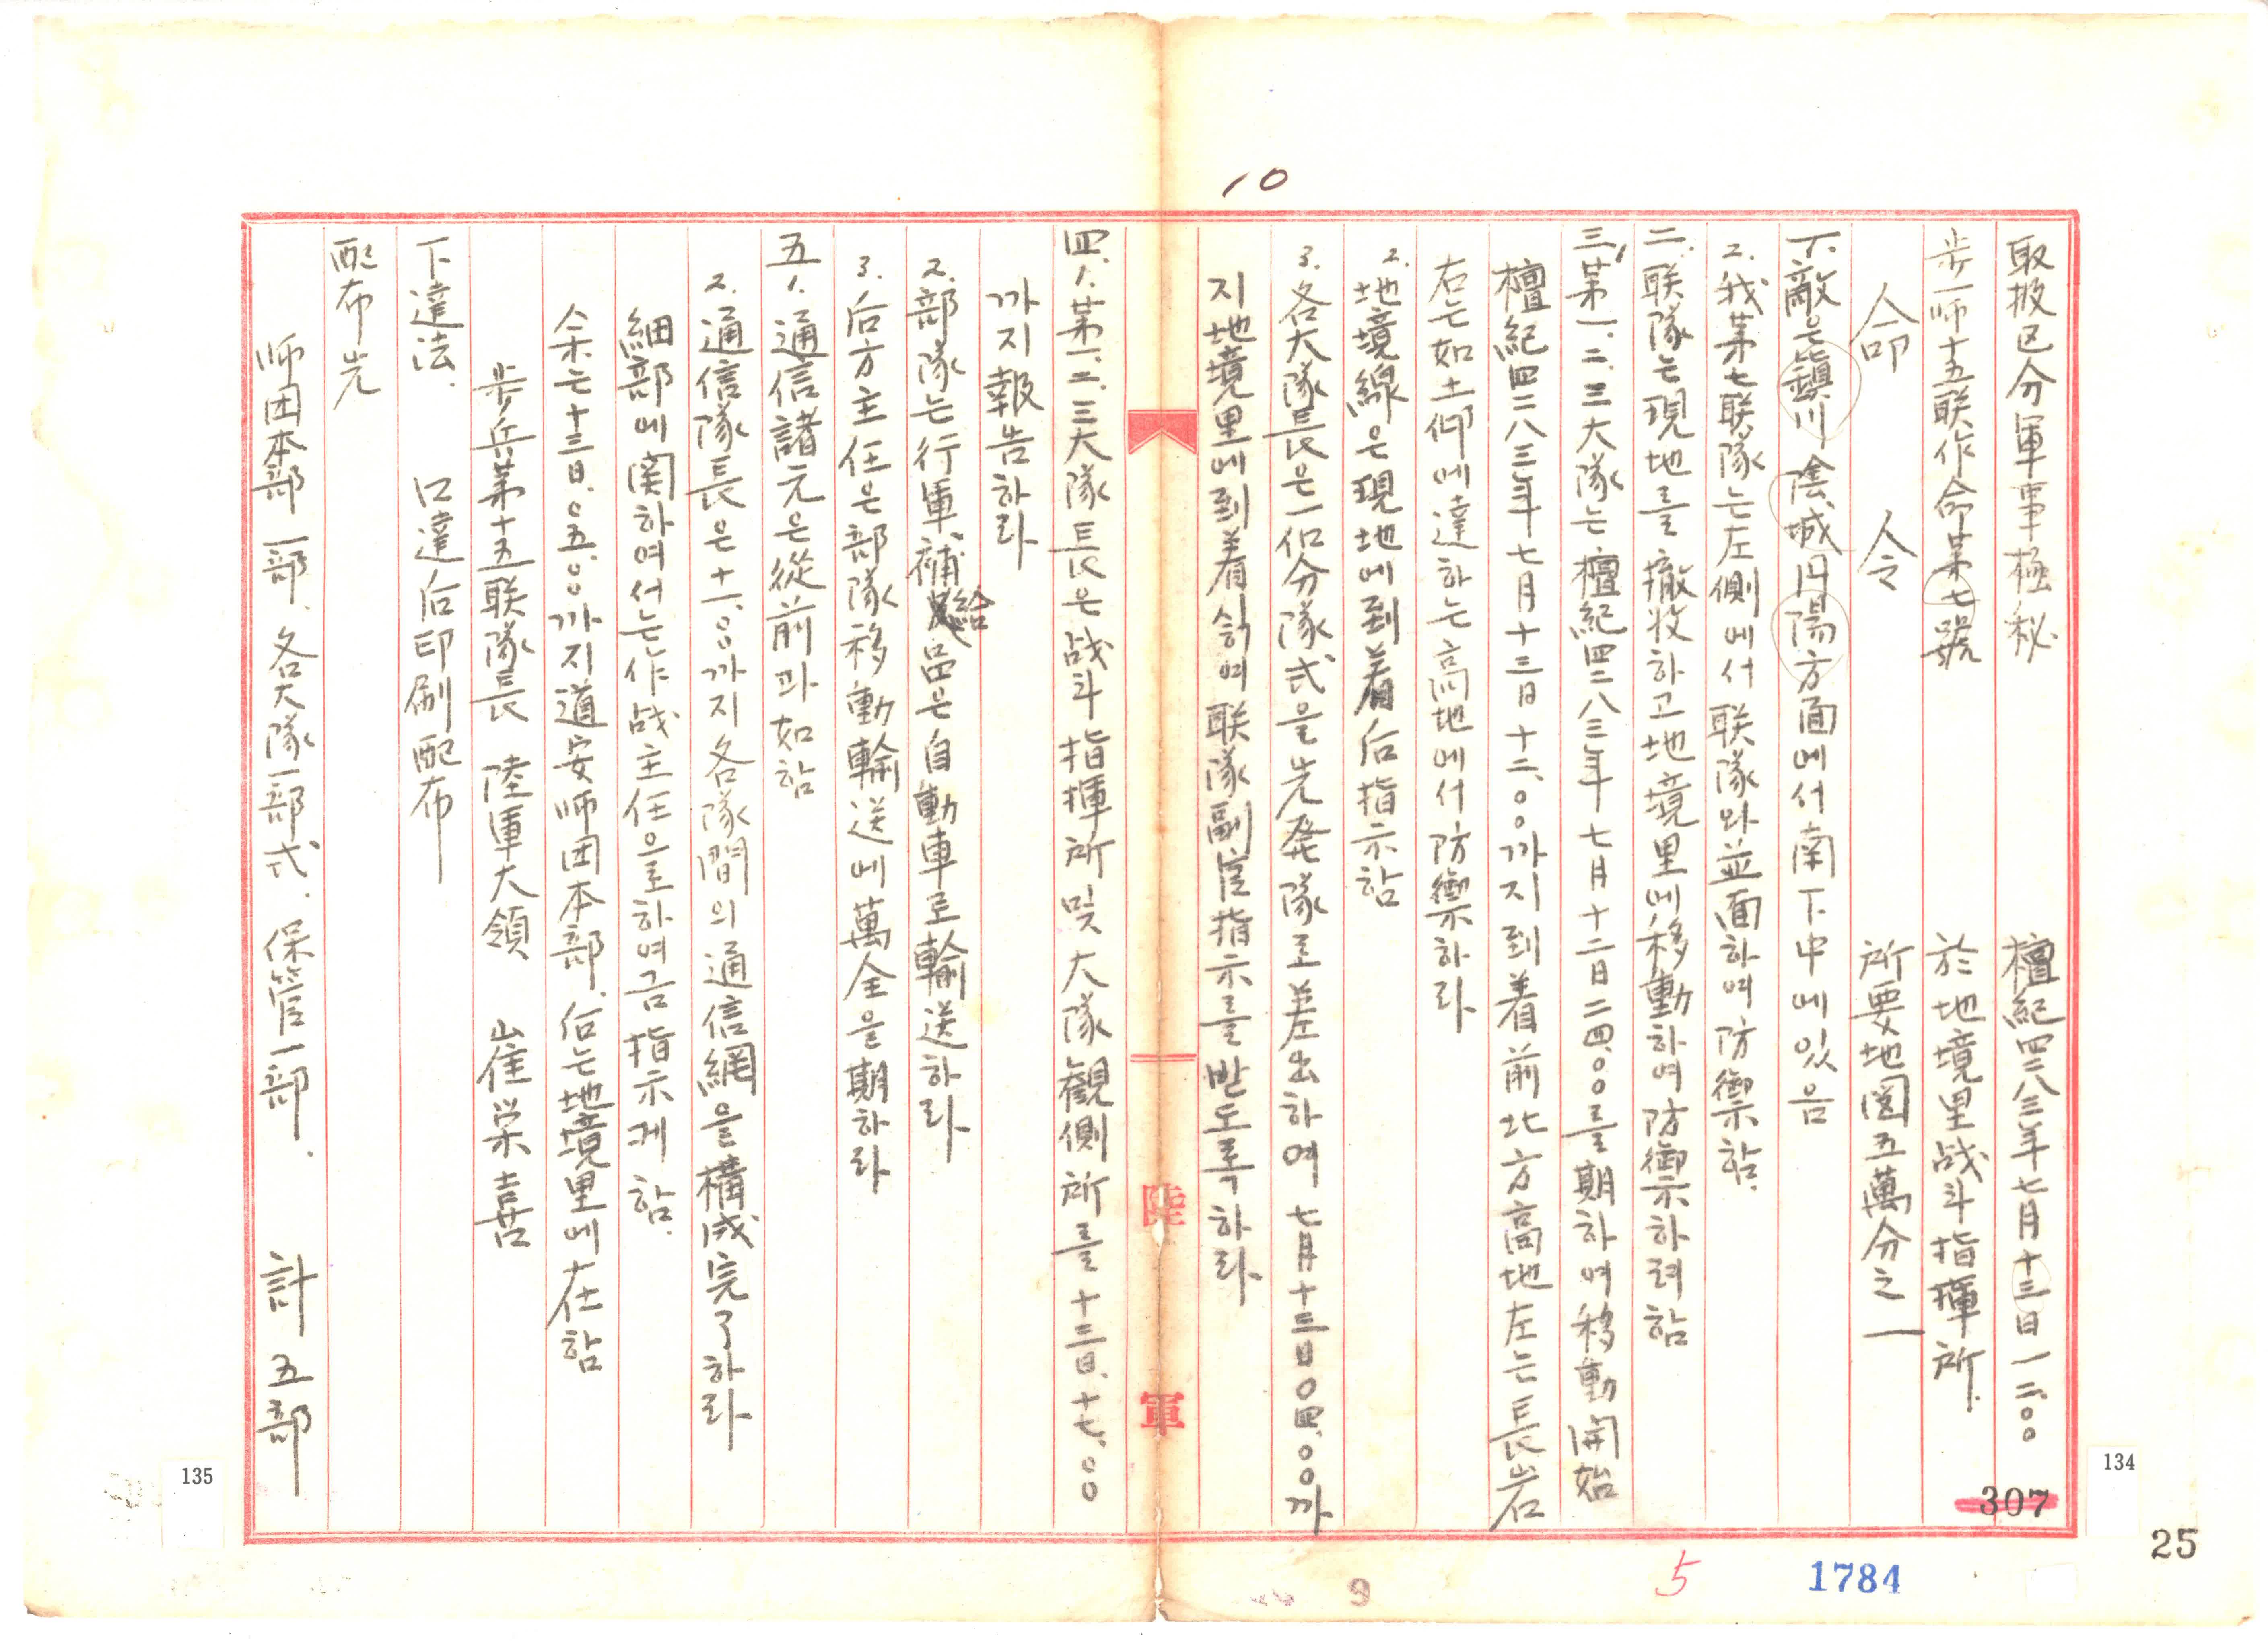 10
取扱区分 軍事極秘 檀紀四二八三年七月十三日 一二.〇〇
步一師十五联作命第七號 於地境里战斗指揮所.
命 令 所要地図五萬分之一
一.1.敵은鎭川陰城丹陽方面에서南下中에있음
2.我第七联隊는左側에서联隊와並面하여防禦함.
二.联隊는現地를撤收하고地境里에移動하여防御示하려함
三.1.第一.二.三大隊는檀紀四二八三年七月十二日二四.〇〇를期하여移動開始
檀紀四二八三年七月十三日十二.〇〇까지到着前北方高地左는長岩
右는如土仰에達하는高地에서防禦하라
2.地境線은現地에到着后指示함
3.各大隊長은一個分隊式을先発隊로差出하여七月十三日〇四.〇〇까
지地境里에到着하여联隊副官指示를받도록하라
四.1.第一.二.三大隊長은战斗指揮所및大隊観側所를十三日.十七.〇〇
까지報告하라
2.部隊는行軍.補給品은自動車로輸送하라
3.后方主任은部隊移動輸送에萬全을期하라
五.1.通信諸元은從前과如함
2.通信隊長은十一.〇〇까지各隊間의通信網을構成完了하라
細部에関하여서는作战主任을하여금指示케함.
余는十三日.〇五.〇〇까지道安师団本部.后는地境里에在함
步兵第十五联隊長 陸軍大領 崔栄喜
下達法. 口達后印刷配布
配布先
师团本部一部.各大隊一部式.保管一部. 計五部
陸軍
135
134
307
25
1784
5
9